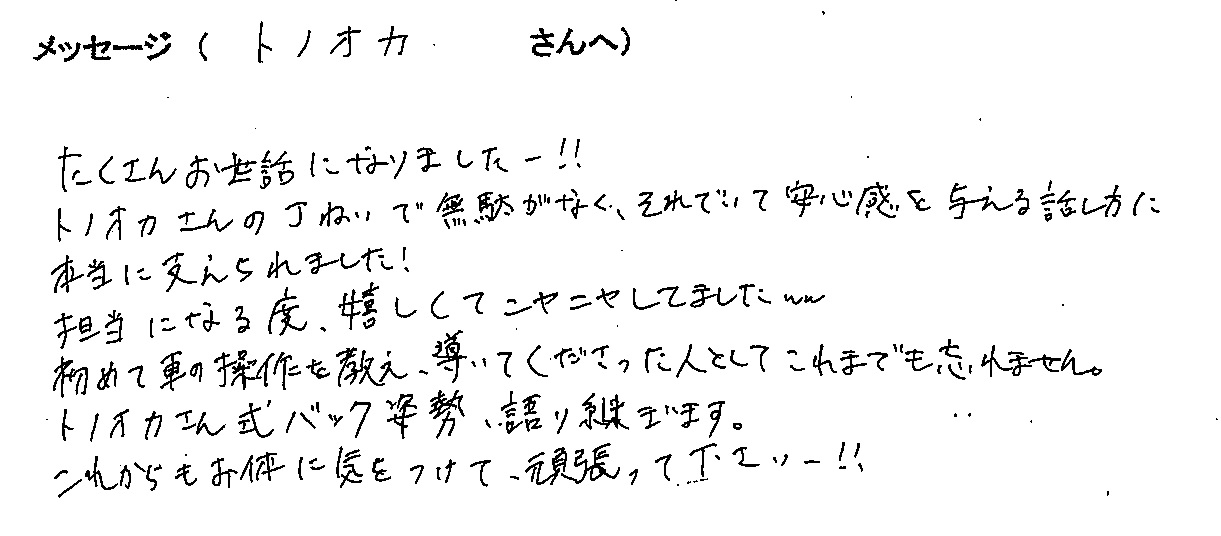 メッセージ（トノオカ さんへ）
たくさんお世話になりましたー!!
トノオカさんの丁ねいで無駄がなく、それでいて安心感を与える話し方に
本当に支えられました!
担当になる度、嬉しくてニヤニヤしてましたww
初めて車の操作を教え、導いてくださった人としてこれまでも忘れません。
トノオカさん式バック姿勢、語り継ぎます。
これからもお体に気をつけて、頑張って下さいー!!